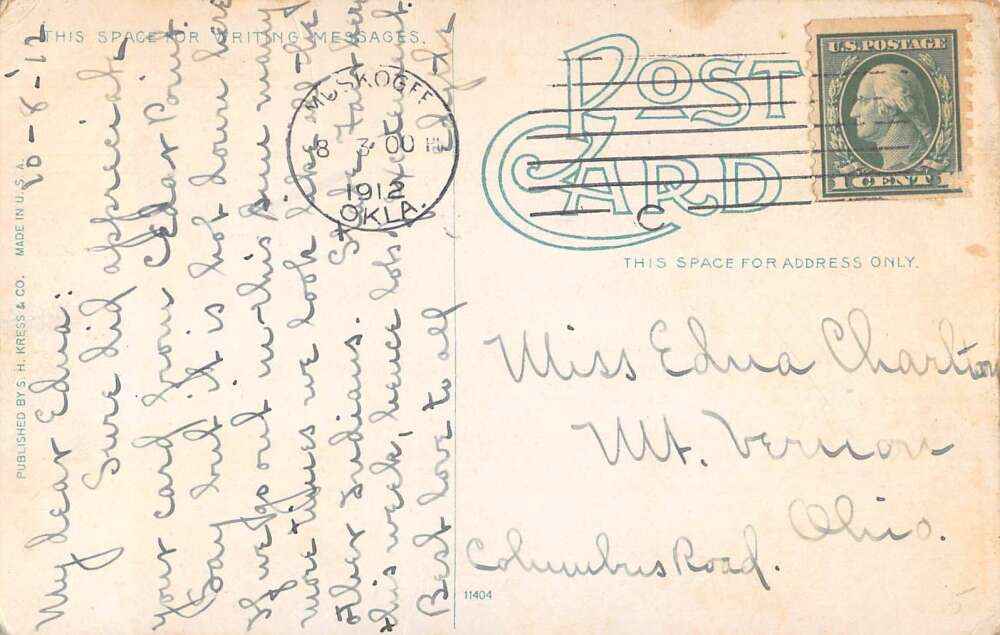 THIS SPACE FOR WRITING MESSAGES.
10-8-12
My dear Edna:
Sure did appreciate
your card from Cedar Point.
Say but it is hot down here
If we go out in this sun many
more times we look like all the
other Indians. State Fair here
this week, hence lots excitement.
Best love to all
PUBLISHED BY S. H. KRESS & CO. MADE IN U. S. A.
MUSKOGEE
8 3 00
1912
OKLA.
POST
CARD
C
U.S. POSTAGE
1 CENT 1
THIS SPACE FOR ADDRESS ONLY.
Miss Edna Charlton
Mt. Vernon
Ohio.
Columbus Road.
11404
5